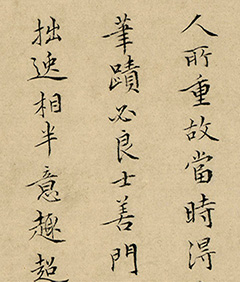 人所重故當時得
筆蹟必良士善門
拙逸相半意趣超